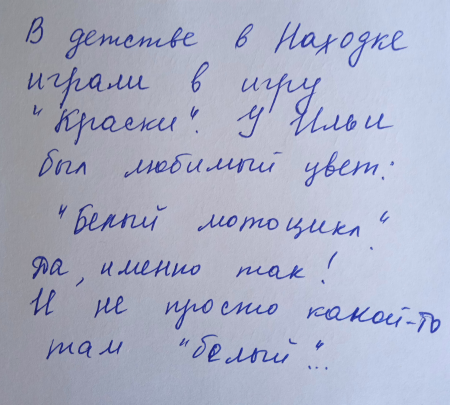 В детстве в Находке
играли в игру
"Краски". У Ильи
был любимый цвет:
"Белый мотоцикл".
Да, именно так!
И не просто какой-то
там "белый"...